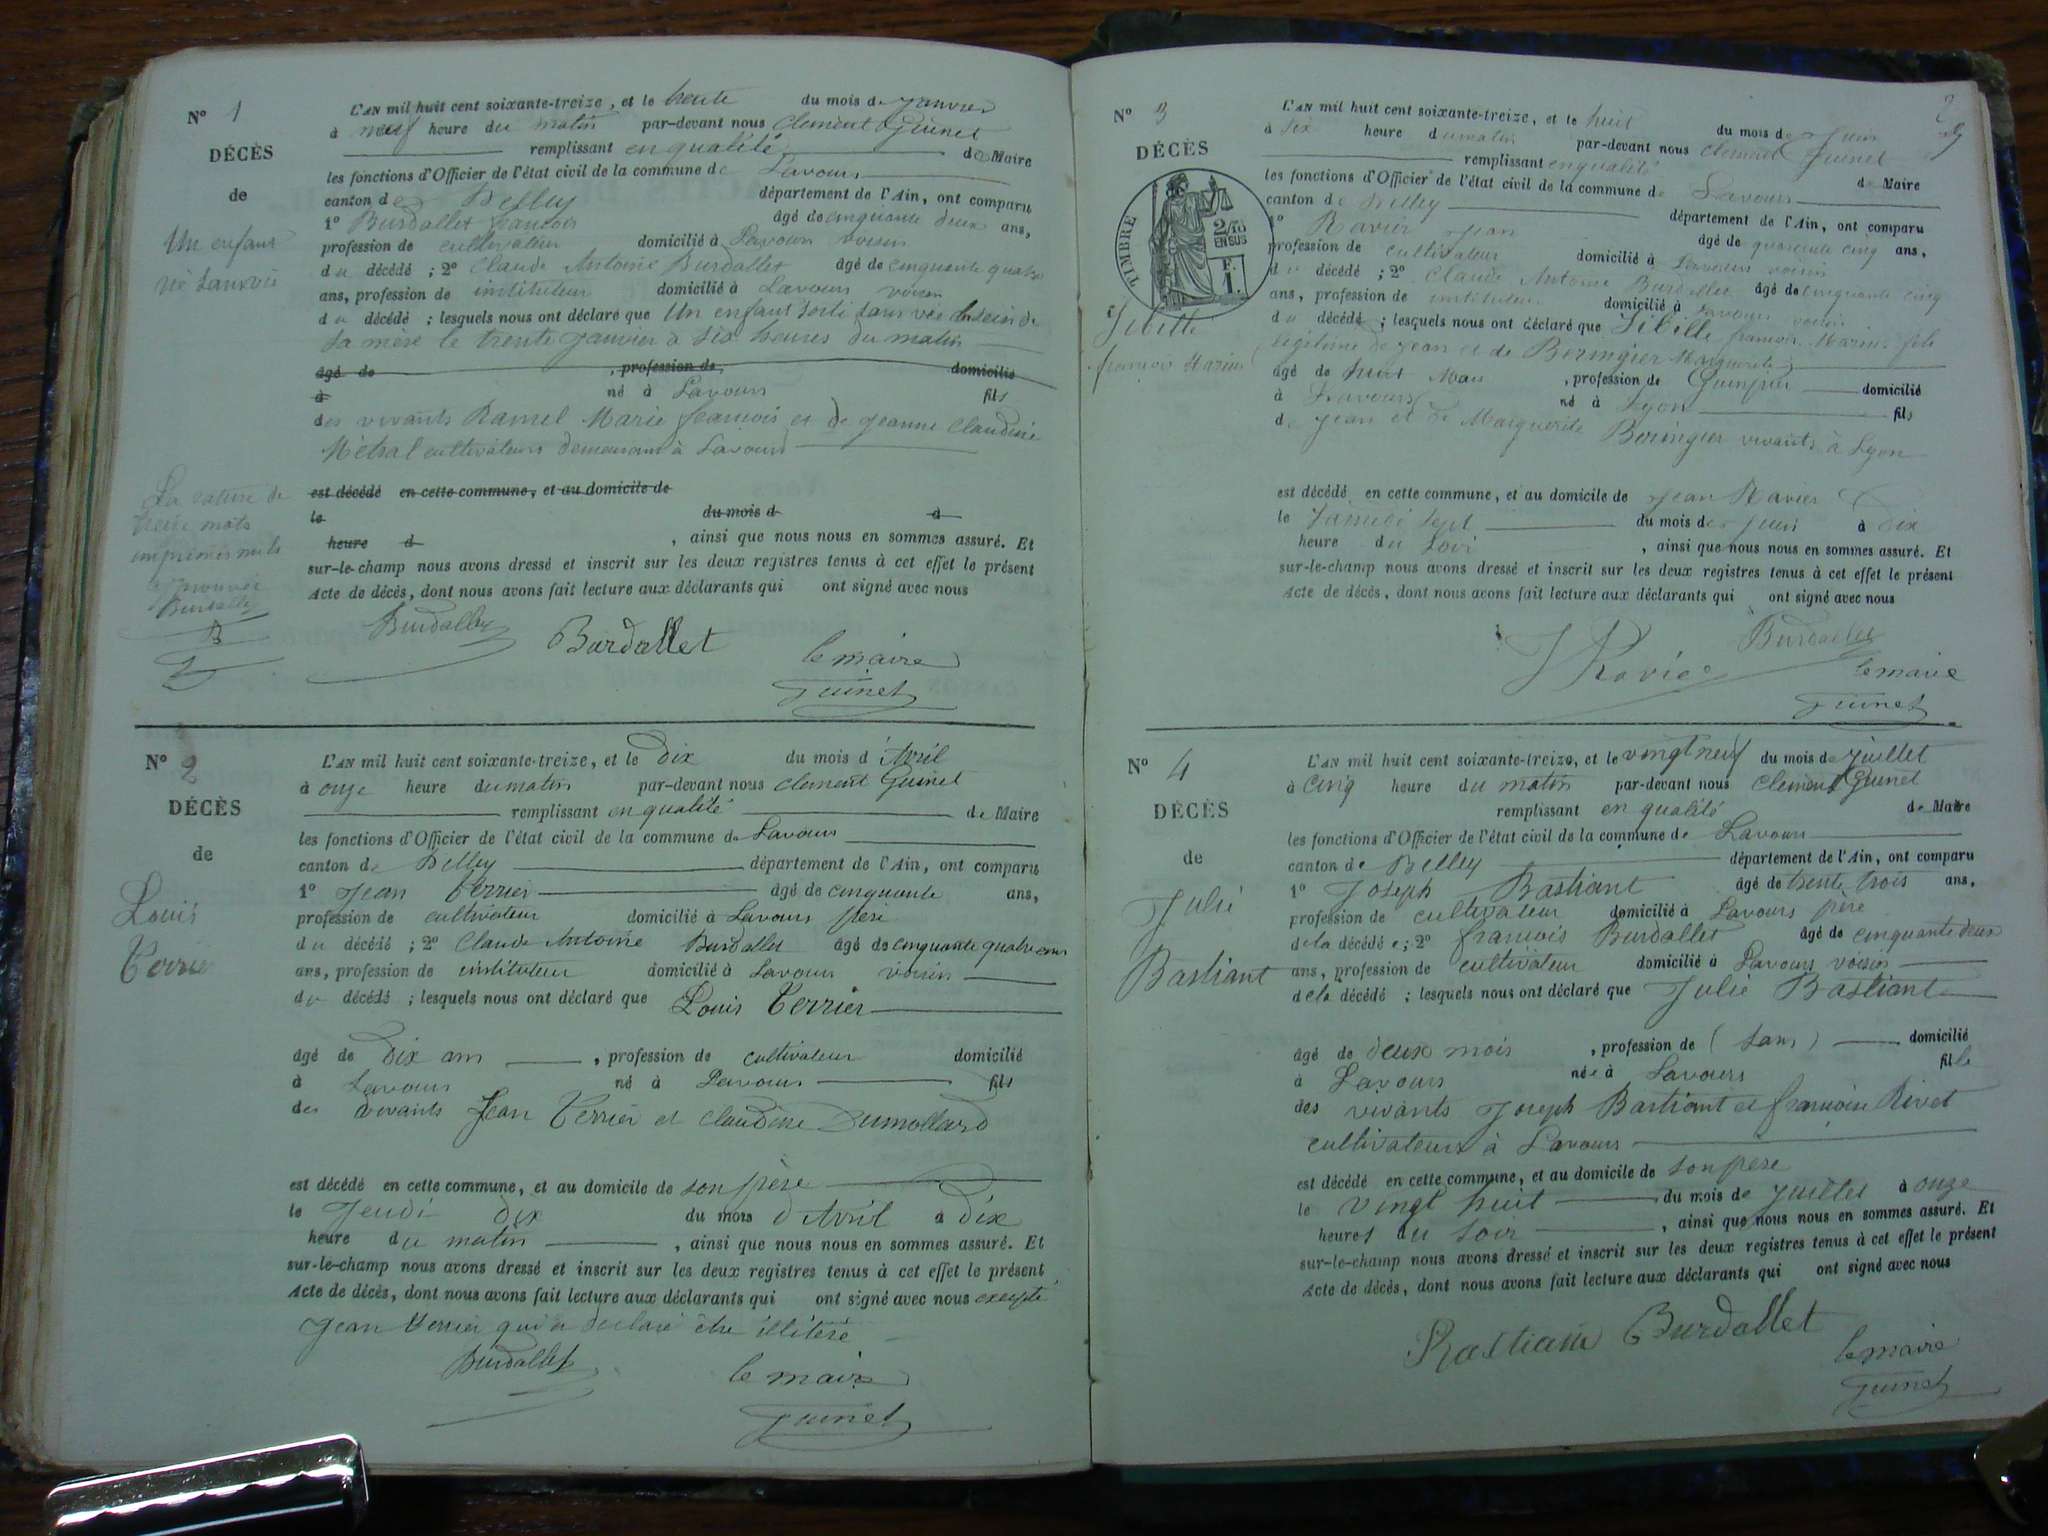 N° 1
DÉCÈS
de
Un enfant
né sans vie
L'AN mil huit cent soixante-treize, et le trente du mois de Janvier
à neuf heure du matin par-devant nous Clement Guinet
remplissant en qualité de Maire
les fonctions d'Officier de l'état civil de la commune de Lavours
canton de Belley département de l'Ain, ont comparu
1° Burdallet francois âgé de cinquante deux ans,
profession de cultivateur domicilié à Lavours voisin
du décédé ; 2° Claude Antoine Burdallet âgé de cinquante quatre
ans, profession de instituteur domicilié à Lavours voisin
du décédé ; lesquels nous ont déclaré que Un enfant sorti sans vie du sein de
sa mère le trente janvier à six heures du matin
âgé de , profession de , domicilié
à né à Lavours fils
des vivants Ramel Marie francois et de Jeanne Claudine
Métral cultivateurs demeurant à Lavours
La rature de
treize mots
imprimés nuls
approuvée
Burdallet
B
est décédé en cette commune, et au domicile de
le du mois d à
heure d , ainsi que nous nous en sommes assuré. Et
sur-le-champ nous avons dressé et inscrit sur les deux registres tenus à cet effet le présent
Acte de décès, dont nous avons fait lecture aux déclarants qui ont signé avec nous
Burdallet Burdallet le maire
Guinet
N° 2
DÉCÈS
de
Louis
Terrier
L'AN mil huit cent soixante-treize, et le Dix du mois d'Avril
à onze heure du matin par-devant nous Clement Guinet
remplissant en qualité de Maire
les fonctions d'Officier de l'état civil de la commune de Lavours
canton de Belley département de l'Ain, ont comparu
1° Jean Terrier âgé de cinquante ans,
profession de cultivateur domicilié à Lavours pere
du décédé ; 2° Claude Antoine Burdallet âgé de cinquante quatre ans
ans, profession de instituteur domicilié à Lavours voisin
du décédé ; lesquels nous ont déclaré que Louis Terrier
âgé de Dix ans , profession de cultivateur domicilié
à Lavours né à Lavours fils
des vivants Jean Terrier et Claudine Dumollard
est décédé en cette commune, et au domicile de son père
le Jeudi dix du mois d'Avril à Dix
heure du matin , ainsi que nous nous en sommes assuré. Et
sur-le-champ nous avons dressé et inscrit sur les deux registres tenus à cet effet le présent
Acte de décès, dont nous avons fait lecture aux déclarants qui ont signé avec nous excepté
Jean Terrier qui a déclaré être illitéré
Burdallet le maire
Guinet
N° 3
DÉCÈS
TIMBRE
2/10
EN SUS
F.
1.
Sibille
francois Marius
L'AN mil huit cent soixante-treize, et le huit du mois de Juin
à dix heure du matin par-devant nous Clement Guinet
remplissant en qualité de Maire
les fonctions d'Officier de l'état civil de la commune de Lavours
canton de Belley département de l'Ain, ont comparu
1° Ravier Jean âgé de quarante cinq ans,
profession de cultivateur domicilié à Lavours voisin
du décédé ; 2° Claude Antoine Burdallet âgé de cinquante cinq
ans, profession de instituteur domicilié à Lavours voisin
du décédé ; lesquels nous ont déclaré que Sibille francois Marius fils
légitime de Jean et de Beringier Marguerite
âgé de huit Mois , profession de domicilié
à Lavours né à Lyon fils
de Jean et de Marguerite Beringier vivants à Lyon
est décédé en cette commune, et au domicile de Jean Ravier
le Samedi sept du mois de Juin à dix
heure du Soir , ainsi que nous nous en sommes assuré. Et
sur-le-champ nous avons dressé et inscrit sur les deux registres tenus à cet effet le présent
Acte de décès, dont nous avons fait lecture aux déclarants qui ont signé avec nous
J Ravier Burdallet
le maire
Guinet
N° 4
DÉCÈS
de
Julie
Bastiant
L'AN mil huit cent soixante-treize, et le vingt neuf du mois de Juillet
à cinq heure du matin par-devant nous Clement Guinet
remplissant en qualité de Maire
les fonctions d'Officier de l'état civil de la commune de Lavours
canton de Belley département de l'Ain, ont comparu
1° Joseph Bastiant âgé de trente trois ans,
profession de cultivateur domicilié à Lavours pere
de la décédée ; 2° francois Burdallet âgé de cinquante deux
ans, profession de cultivateur domicilié à Lavours voisin
de la décédé ; lesquels nous ont déclaré que Julie Bastiant
âgé de deux mois , profession de (sans) domicilié
à Lavours née à Lavours fille
des vivants Joseph Bastiant et francoise Rivet
cultivateurs à Lavours
est décédé en cette commune, et au domicile de son père
le vingt huit du mois de Juillet à onze
heures du soir , ainsi que nous nous en sommes assuré. Et
sur-le-champ nous avons dressé et inscrit sur les deux registres tenus à cet effet le présent
Acte de décès, dont nous avons fait lecture aux déclarants qui ont signé avec nous
Bastiant Burdallet
le maire
Guinet